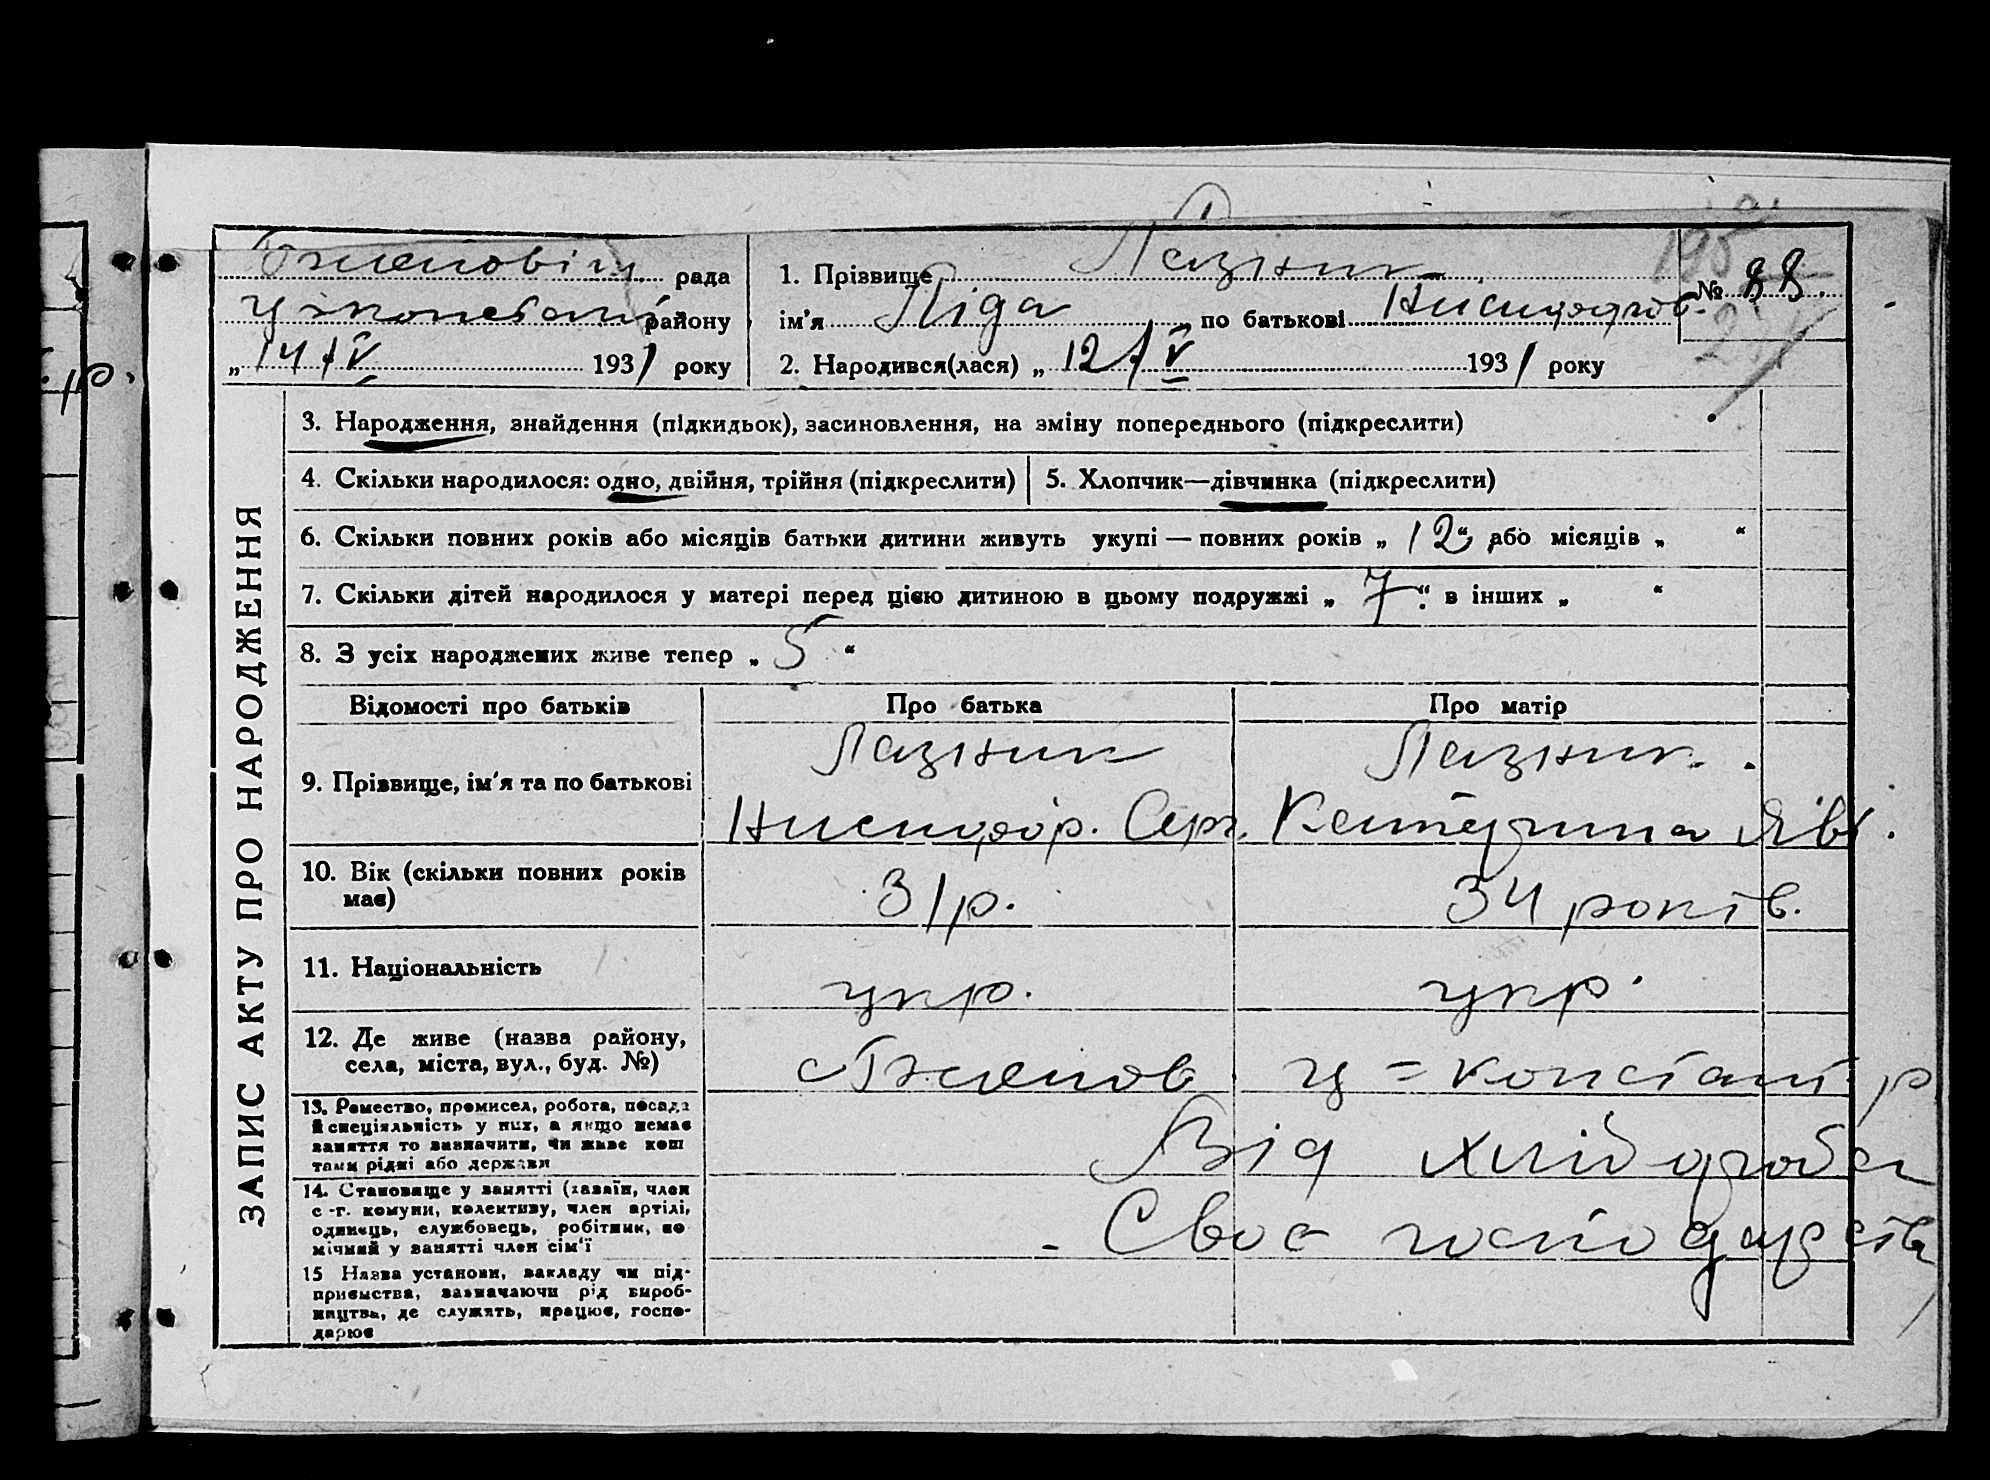 рада 1. Прізвище Лазник № 88.
району ім'я Ліда по батькові
„ 14/V 1931 року 2. Народився(лася) „ 12/V 1931 року
3. Народження, знайдення (підкидьок), засиновлення, на зміну попереднього (підкреслити)
4. Скільки народилося: одно, двійня, трійня (підкреслити) 5. Хлопчик—дівчинка (підкреслити)
6. Скільки повних років або місяців батьки дитини живуть укупі — повних років „ 12 “, або місяців „ “
7. Скільки дітей народилося у матері перед цією дитиною в цьому подружжі „ 7 “. в інших „ “
8. З усіх народжених живе тепер „ 5 “
ЗАПИС АКТУ ПРО НАРОДЖЕННЯ
Відомості про батьків Про батька Про матір
9. Прізвище, ім'я та по батькові Лазник Лазник.
Серг. Катерина
10. Вік (скільки повних років має) 31 р. 34 років.
11. Національність укр. укр.
12. Де живе (назва району, села, міста, вул., буд. №) ц=констант р
13. Ремество, промисел, робота, посада й спеціяльність у них, а якщо немає заняття то визначити, чи живе коштами рідні або держави Від хліборобст
14. Становище у занятті (хазаїн, член с.-г. комуни, колективу, член артілі, одинець, службовець, робітник, помічний у занятті член сім'ї Своє господарств
15 Назва установи, закладу чи підприємства, зазначаючи рід виробництва, де служить, працює, господарює